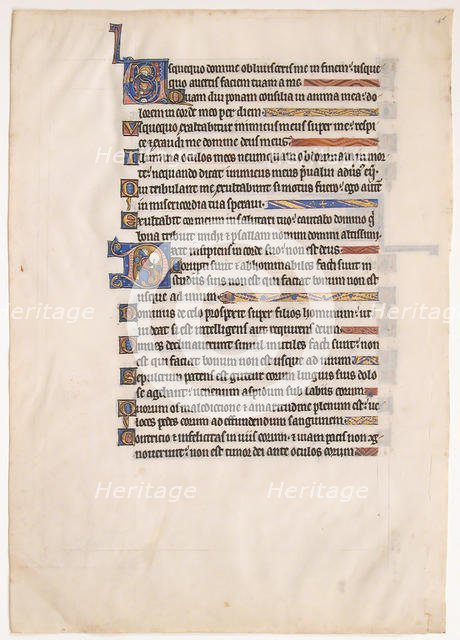 Usquequo domine oblivisceris me in finem: usque
quo avertis faciem tuam a me.
Quam diu ponam consilia in anima mea: do
lorem in corde meo per diem.
Usquequo exaltabitur inimicus meus super me: respi
ce & exaudi me domine deus meus.
Illumina oculos meos ne umquam obdormiam in mor
te: nequando dicat inimicus meus prevalui adversus eum
Qui tribulant me exultabunt si motus fuero: ego autem
in misericordia tua speravi.
Exultabit cor meum in salutari tuo: cantabo domino qui
bona tribuit michi & psallam nomini domini altissimi.
Dixit insipiens in corde suo: non est deus.
Corrupti sunt & abhominabiles facti sunt in
studiis suis non est qui faciat bonum non est
usque ad unum
Dominus de celo prospexit super filios hominum: ut
videat si est intelligens aut requirens deum.
Omnes declinaverunt simul inutiles facti sunt: non
est qui faciat bonum non est usque ad unum
Sepulcrum patens est guttur eorum linguis suis dolo
se agebant: venenum aspidum sub labiis eorum.
Quorum os maledictione & amaritudine plenum est: ve
loces pedes eorum ad effundendum sanguinem.
Contritio & infelicitas in viis eorum & viam pacis non cog
noverunt: non est timor dei ante oculos eorum
Heritage
Heritage
Heritage
Heritage
Heritage
Heritage